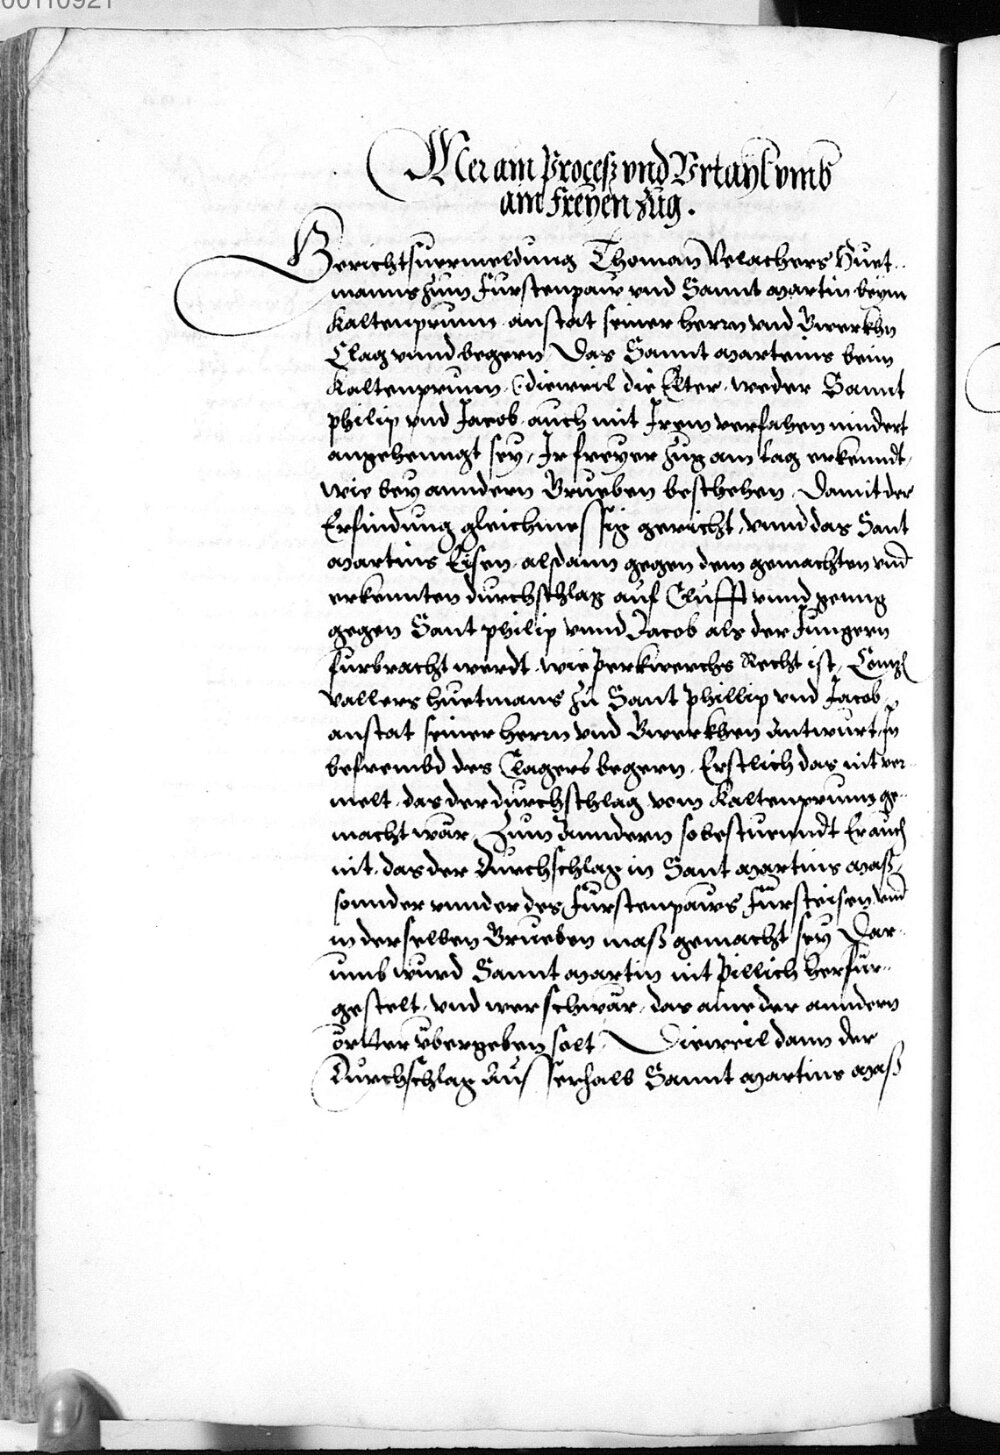 00110921
Mer ain Proceß vnd Vrtayl vmb
ain freyen Zug.
Gerichtsvermeldung Thoman Velachers Huet¬
manns zum Fürstenpaw vnd Sannt Martin beym
Kaltenprunn anstat seiner herrn vnd Gwerkhn
Clag vnnd begern, Das Sannt Marteins beim
Kaltenprunn, (: dieweil die Elter, weder Sannt
Philip vnd Jacob, auch mit Irem verfahen nindert
angehenngt sey, Ir freyer Zug am tag erkenndt,
wie bey anndern Grueben beschehen, Damit der
Erfindung gleichmessig gericht, vnnd das Sant
Martins Eisen alsdann gegen dem gemachten vnd
erkennten durchschlag auf Clufft vnnd genng
gegen Sant Philip vnnd Jacob als der Jungern
furbracht werdt, wie Perkwerchs Recht ist,
Vallers huetmans zu Sant Phillip vnd Jacob,
anstat seiner herrn vnd Gwerkhen Antwurt, In
befrembd des Clagers begern, Erstlich das nit ver¬
melt, das der durchschlag vom Kaltenprunn ge¬
macht wär, Zum Anndern so bestuenndt Er auch
nit, das der Durchschlag in Sant Martins Maß,
sonnder vnnder des Fürstenpaws Fürsteisen vnd
in derselben Grueben maß gemacht sey, Dar¬
umb wurd Sannt Martin nit Pillich herfür¬
gestelt, vnd wer schwär, das aine der anndern
örtter vbergeben solt, Dieweil dann der
Durchschlag Ausserhalb Sannt Martins Maß